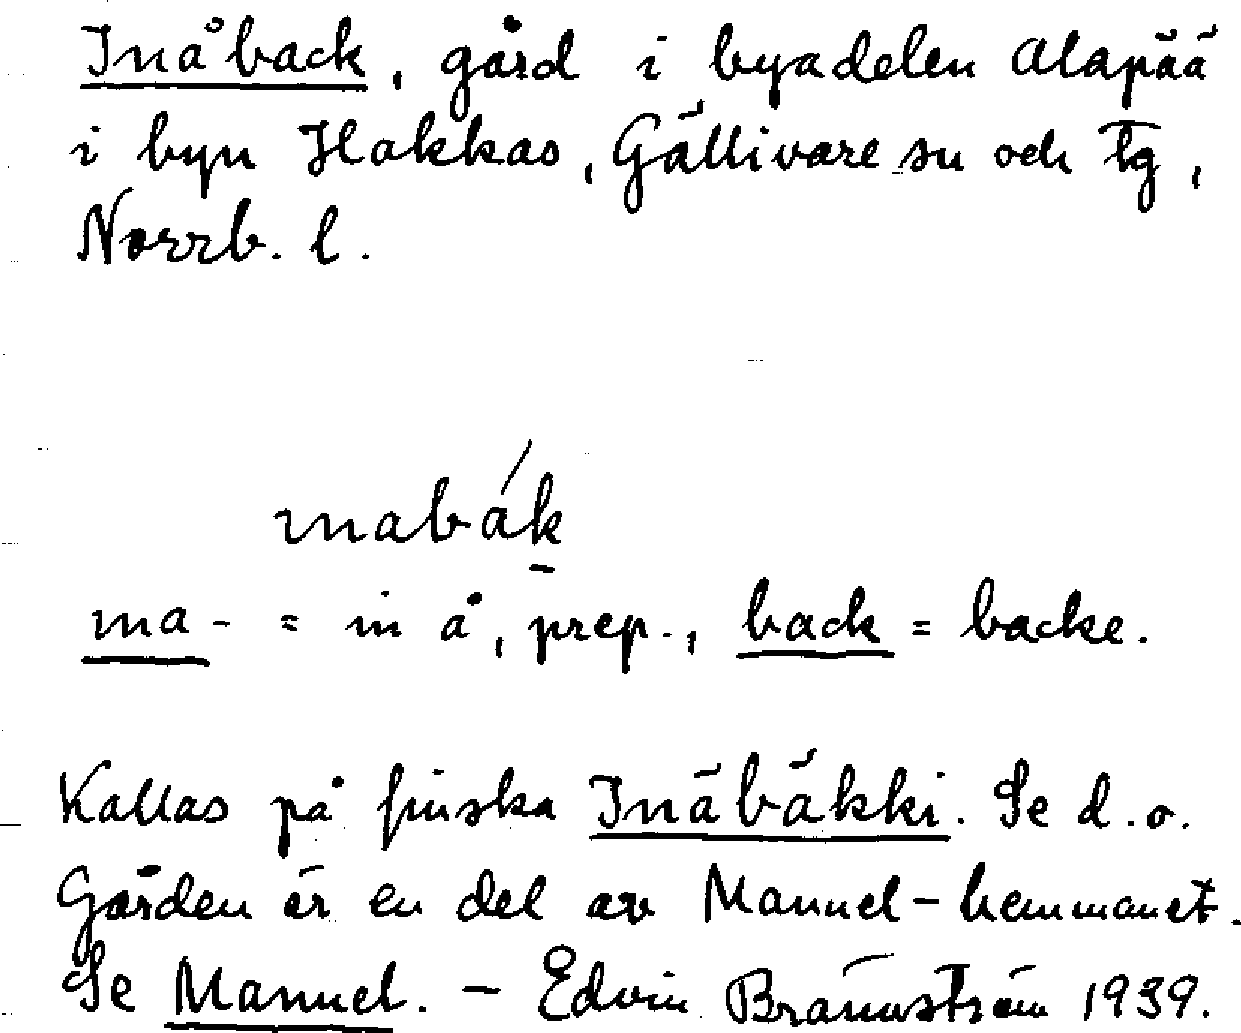 Inåback, gård i byadelen Alapää
i byn Hakkas, Gällivare sn och tg,
Norrb. l.
ınabák
ına- = in å, prep., back = backe.
Kallas på finska Inäbäkki. Se d.o.
Gården är en del av Manuel-hemmanet.
Se Manuel. - Edvin Brännström 1939.